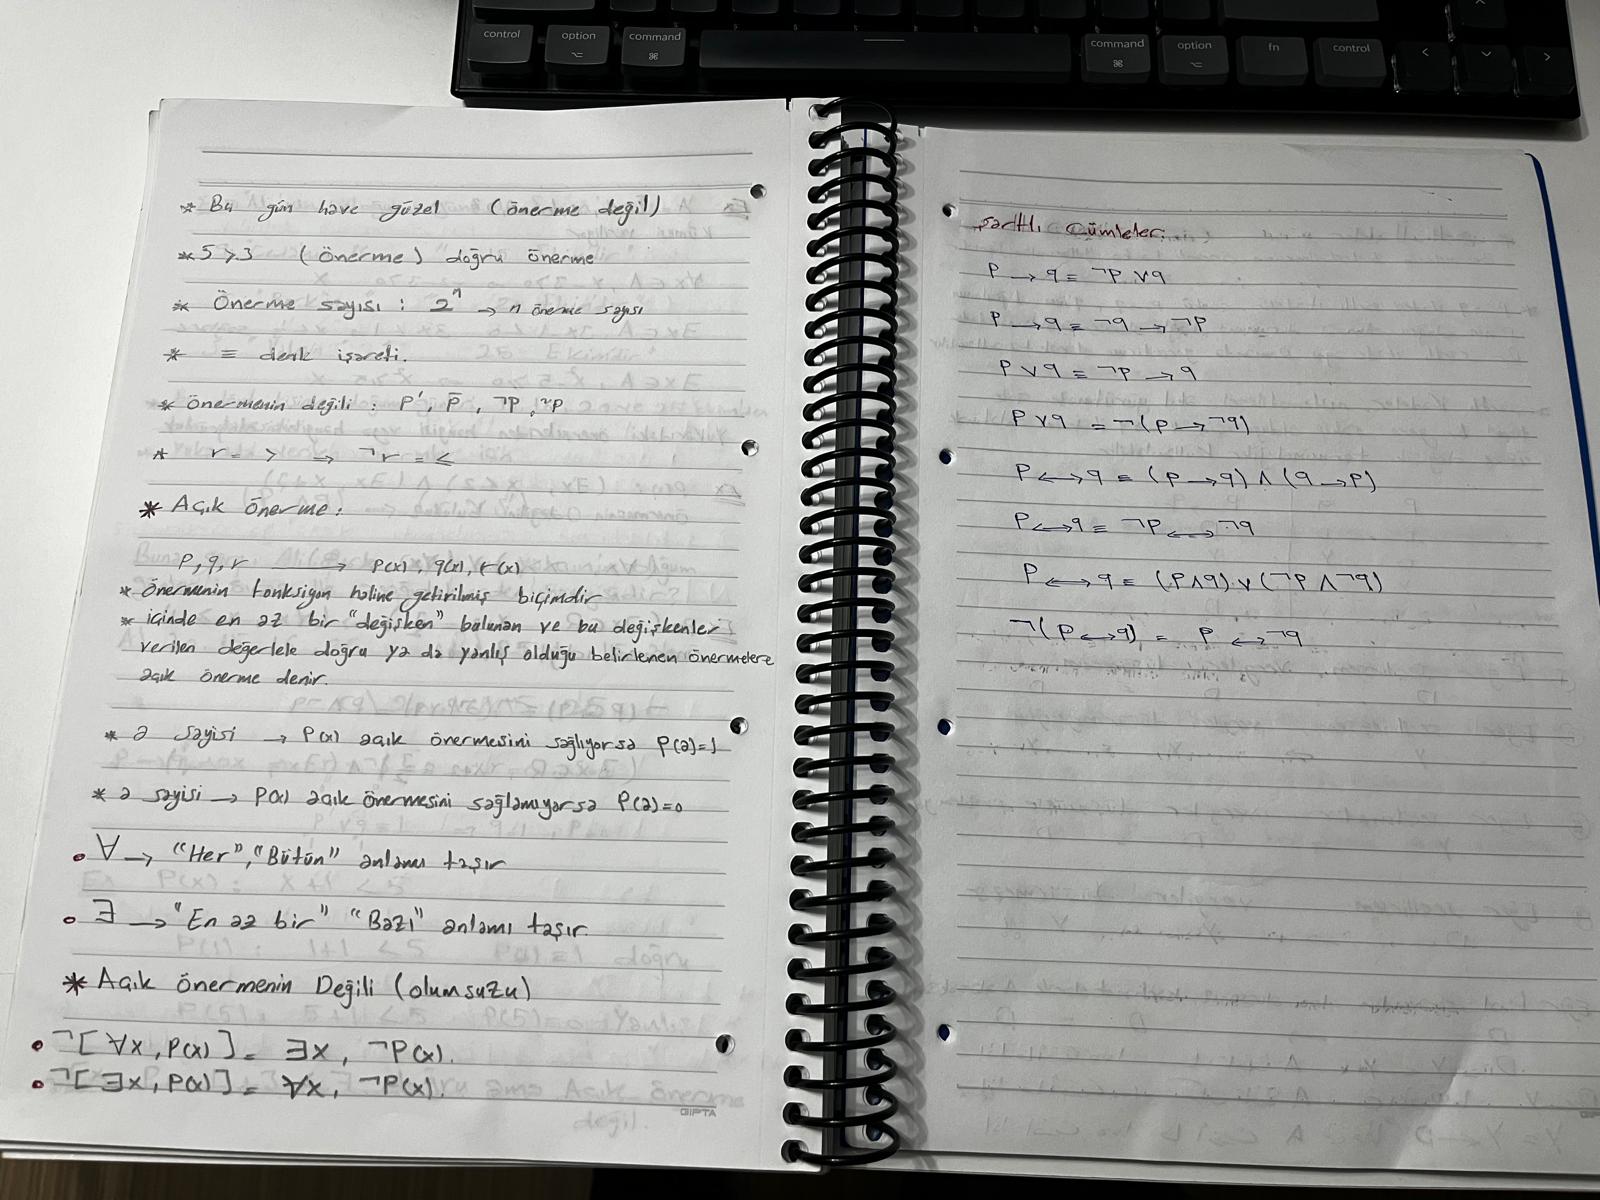 control option command command option fn control
* Bu gün hava güzel (önerme değil)
* 5 > 3 (önerme) doğru önerme
* Önerme sayısı : 2ⁿ → n önerme sayısı
* ≡ denk işareti.
* önermenin değili : p', p̄, ¬p, ~p
* r = > ⇒ ¬r = ≤
* Açık önerme :
p, q, r → p(x), q(x), r(x)
* önermenin fonksiyon haline getirilmiş biçimdir
* içinde en az bir "değişken" bulunan ve bu değişkenler
verilen değerlele doğru ya da yanlış olduğu belirlenen önermelere
açık önerme denir.
* a sayisi → P(x) açık önermesini sağlıyorsa P(a)=1
* a sayisi → P(x) açık önermesini sağlamıyorsa P(a)=0
• ∀ → "Her", "Bütün" anlamı taşır
• ∃ → "En az bir" "Bazı" anlamı taşır
* Açık önermenin Değili (olumsuzu)
• ¬[∀x, P(x)] = ∃x, ¬P(x).
• ¬[∃x, P(x)] = ∀x, ¬P(x).
GIPTA
Şarttlı Cümleler:
P → q ≡ ¬P ∨ q
P → q ≡ ¬q → ¬P
P ∨ q ≡ ¬P → q
P ∨ q = ¬(P → ¬q)
P ↔ q = (P → q) ∧ (q → P)
P ↔ q ≡ ¬P ↔ ¬q
P ↔ q = (P ∧ q) ∨ (¬P ∧ ¬q)
¬(P ↔ q) = P ↔ ¬q